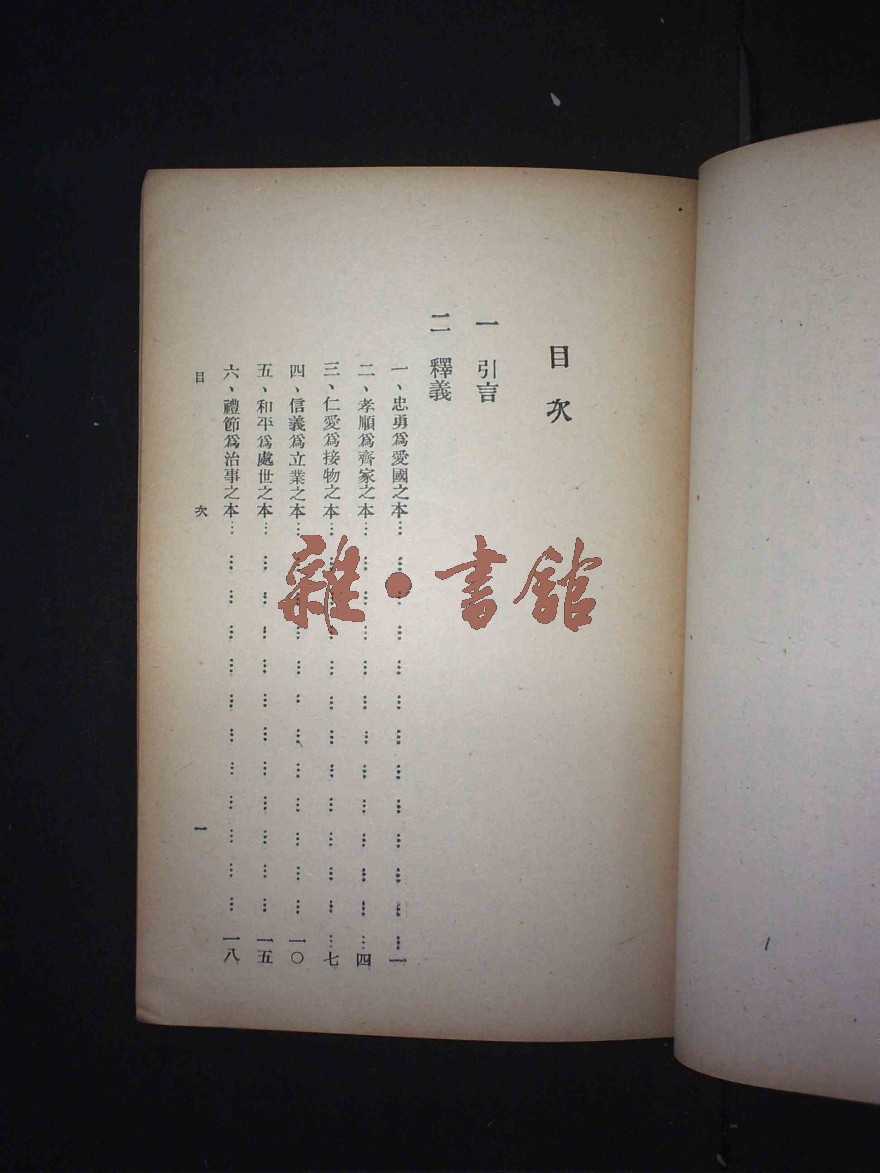 目次
一 引言
二 釋義
一、忠勇爲愛國之本………………………………………一
二、孝順爲齊家之本………………………………………四
三、仁愛爲接物之本………………………………………七
四、信義爲立業之本………………………………………一〇
五、和平爲處世之本………………………………………一五
六、禮節爲治事之本………………………………………一八
目次 一
雜·書館